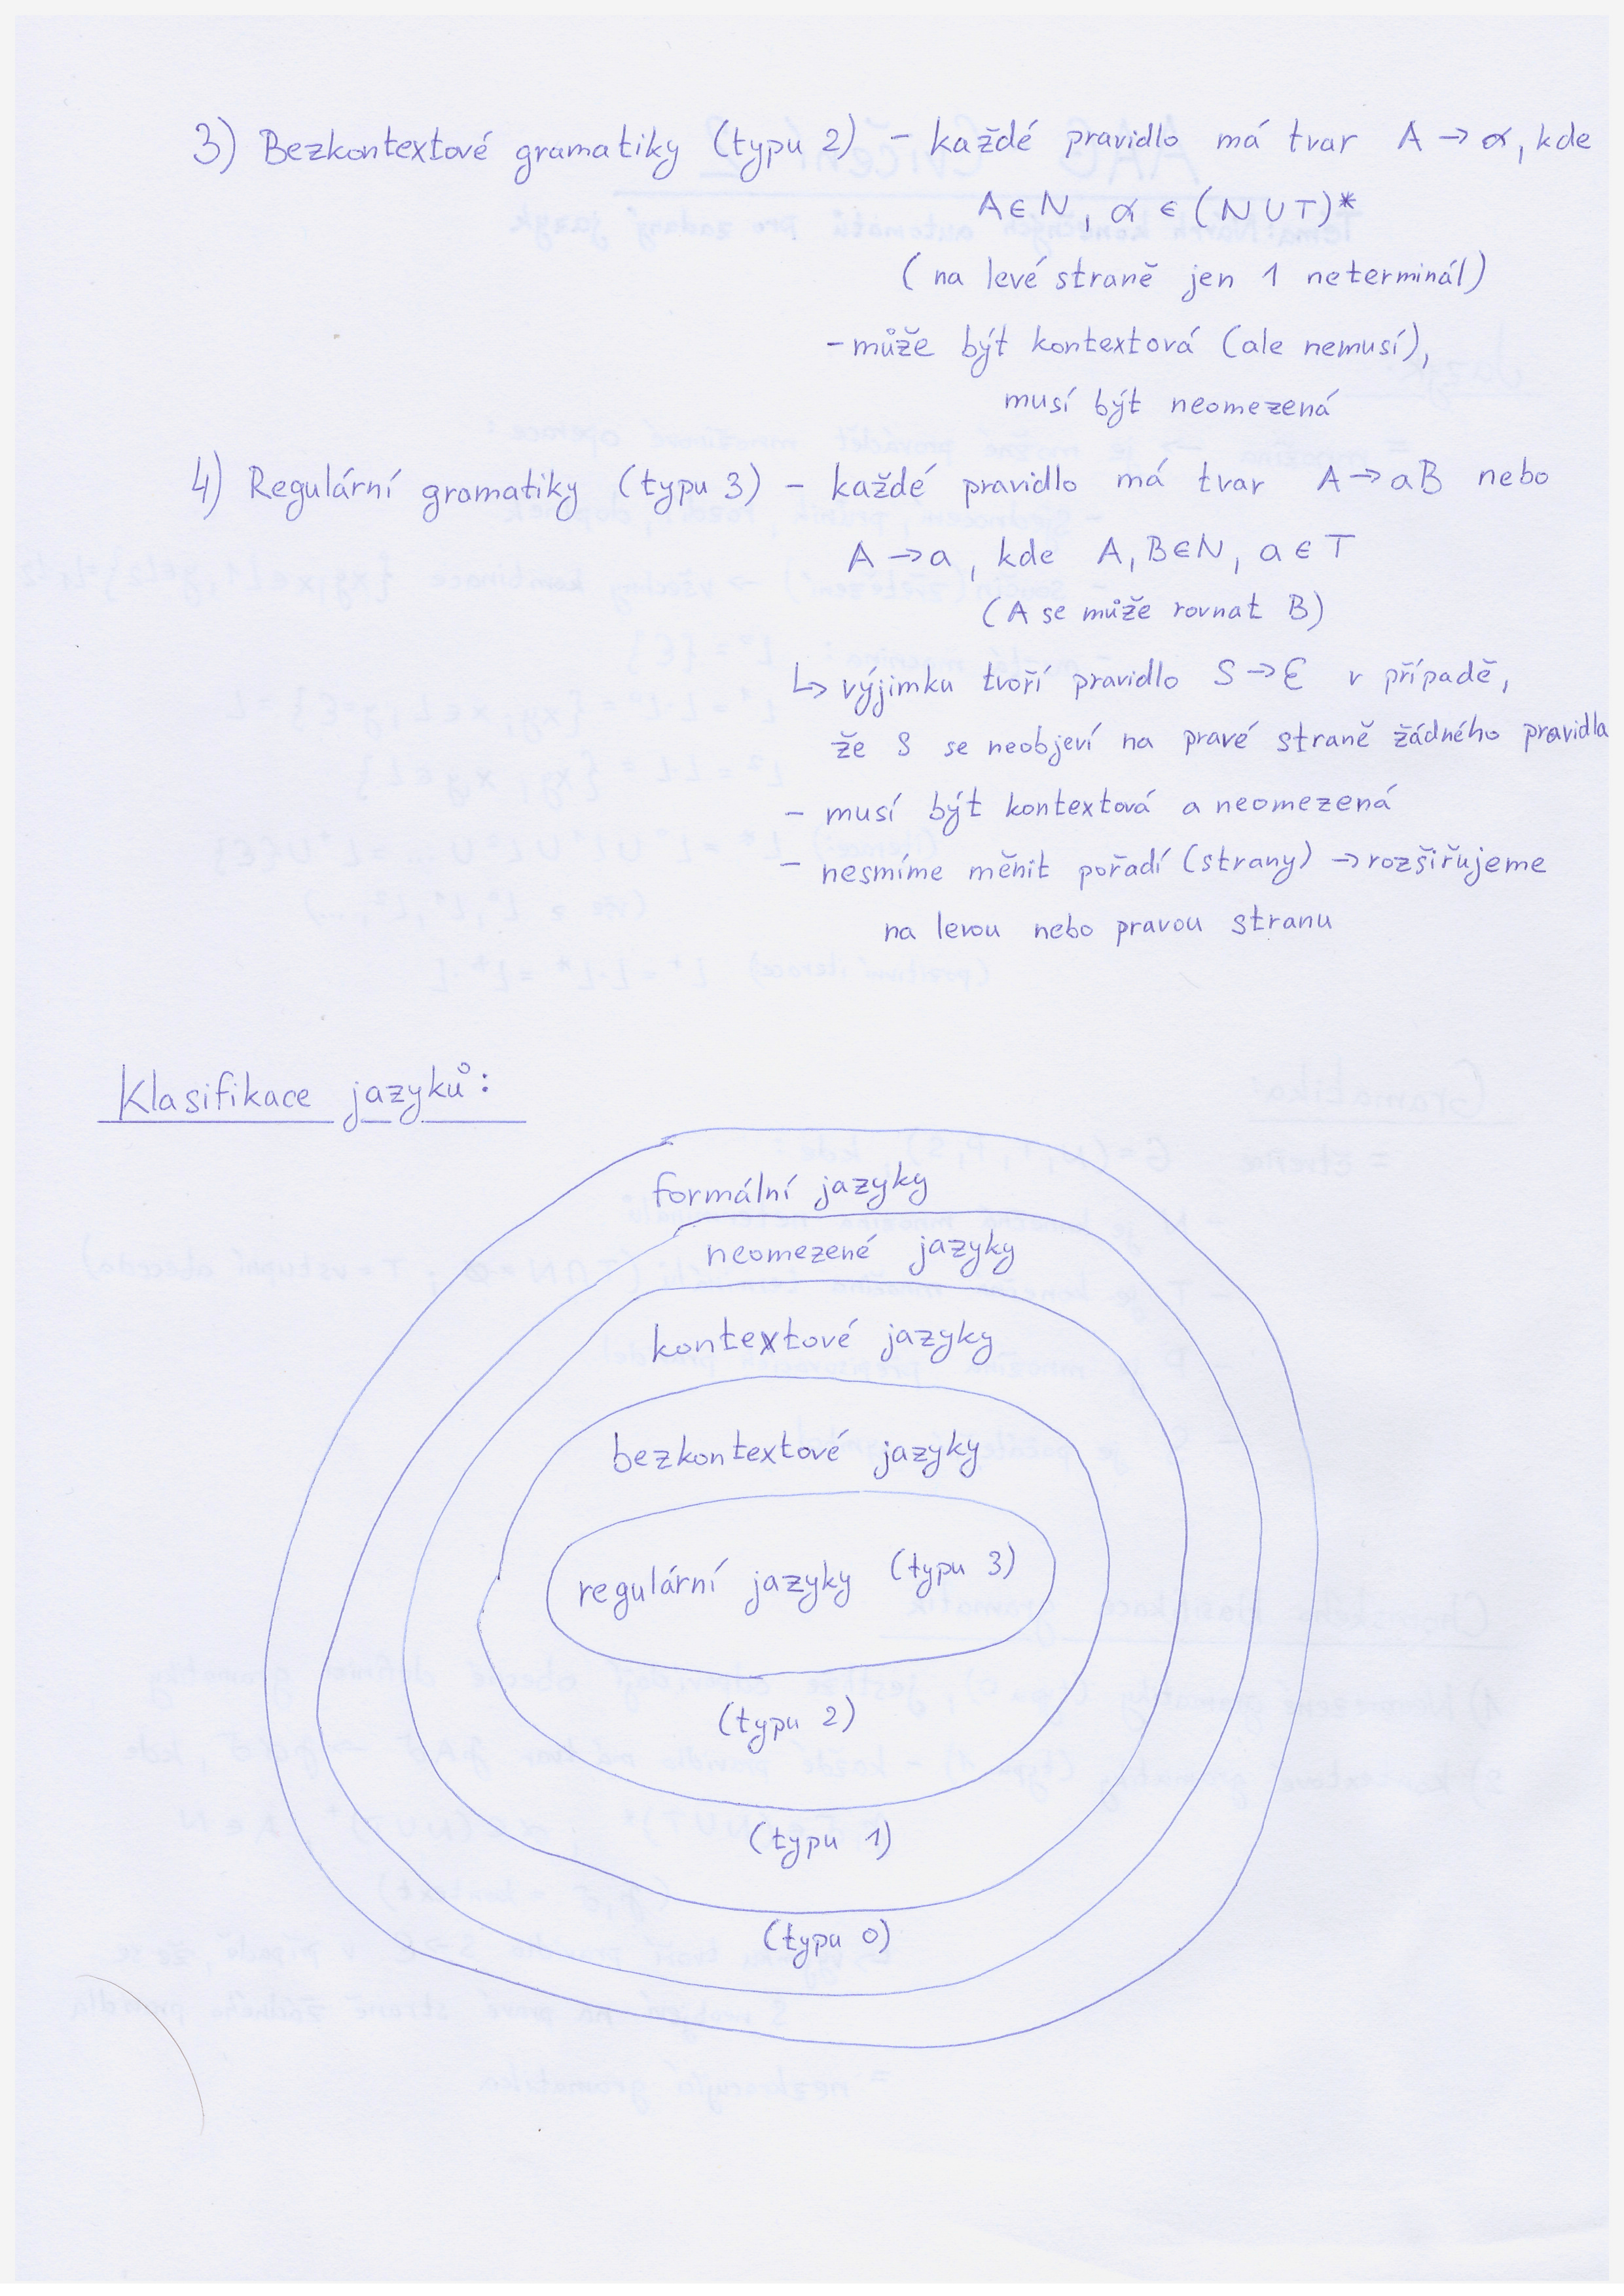 3) Bezkontextové gramatiky (typu 2) - každé pravidlo má tvar A → α, kde
A ∈ N, α ∈ (N ∪ T)*
(na levé straně jen 1 neterminál)
- může být kontextová (ale nemusí),
musí být neomezená
4) Regulární gramatiky (typu 3) - každé pravidlo má tvar A → aB nebo
A → a, kde A, B ∈ N, a ∈ T
(A se může rovnat B)
↳ výjimku tvoří pravidlo S → ε v případě,
že S se neobjeví na pravé straně žádného pravidla
- musí být kontextová a neomezená
- nesmíme měnit pořadí (strany) → rozšiřujeme
na levou nebo pravou stranu
Klasifikace jazyků:
formální jazyky
neomezené jazyky
kontextové jazyky
bezkontextové jazyky
regulární jazyky (typu 3)
(typu 2)
(typu 1)
(typu 0)